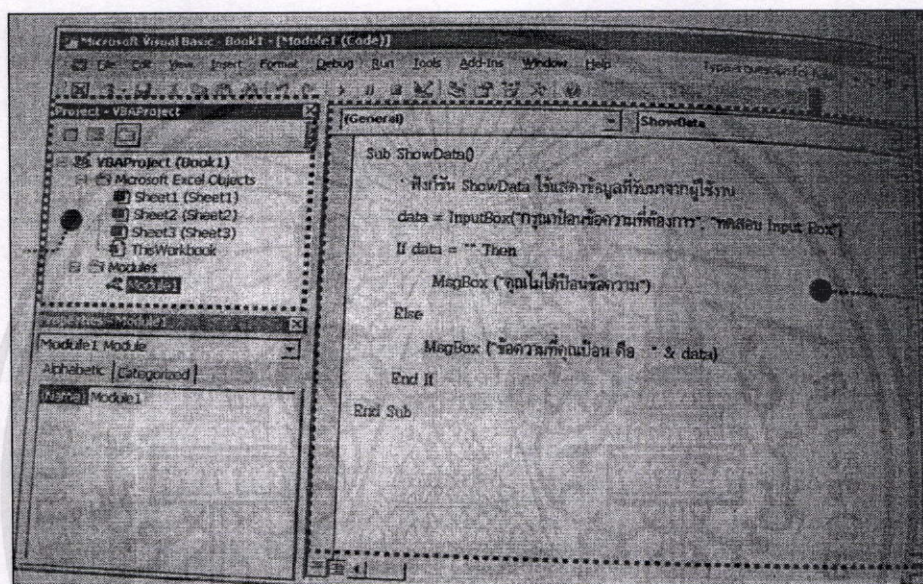 Microsoft Visual Basic - Book1 - [Module1 (Code)]
File Edit View Insert Format Debug Run Tools Add-Ins Window Help
Project - VBAProject
VBAProject (Book1)
Microsoft Excel Objects
Sheet1 (Sheet1)
Sheet2 (Sheet2)
Sheet3 (Sheet3)
ThisWorkbook
Modules
Module1
Properties - Module1
Module1 Module
Alphabetic Categorized
(Name) Module1
(General) ShowData
Sub ShowData()
' ฟังก์ชัน ShowData ใช้แสดงข้อมูลที่รับมาจากผู้ใช้งาน
data = InputBox("กรุณาป้อนข้อความที่ต้องการ", "ทดสอบ Input Box")
If data = "" Then
MsgBox ("คุณไม่ได้ป้อนข้อความ")
Else
MsgBox ("ข้อความที่คุณป้อน คือ : " & data)
End If
End Sub